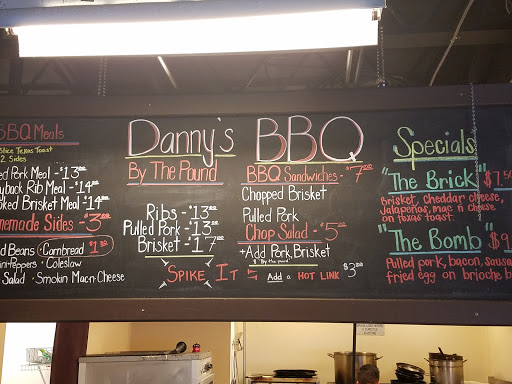 BBQ Meals
Slice Texas Toast
2 Sides
Pork Meal - $13.00
Rib Meal - $14.00
Brisket Meal - $14.00
Sides - $3.00
Beans · Cornbread $1.50
· Coleslaw
Salad · Smokin Mac-n-Cheese
Danny's
By The Pound
Ribs - $13.00
Pulled Pork - $13.00
Brisket - $17.00
Spike It
BBQ
BBQ Sandwiches - $7.00
Chopped Brisket
Pulled Pork
Chop Salad - $5.00
+Add Pork, Brisket
By the pound
Add a HOT LINK $3.00
Specials
"The Brick" $7.50
Brisket, cheddar cheese,
Jalapeños, mac n cheese
on texas toast
"The Bomb" $9
Pulled pork, bacon,
fried egg on brioche